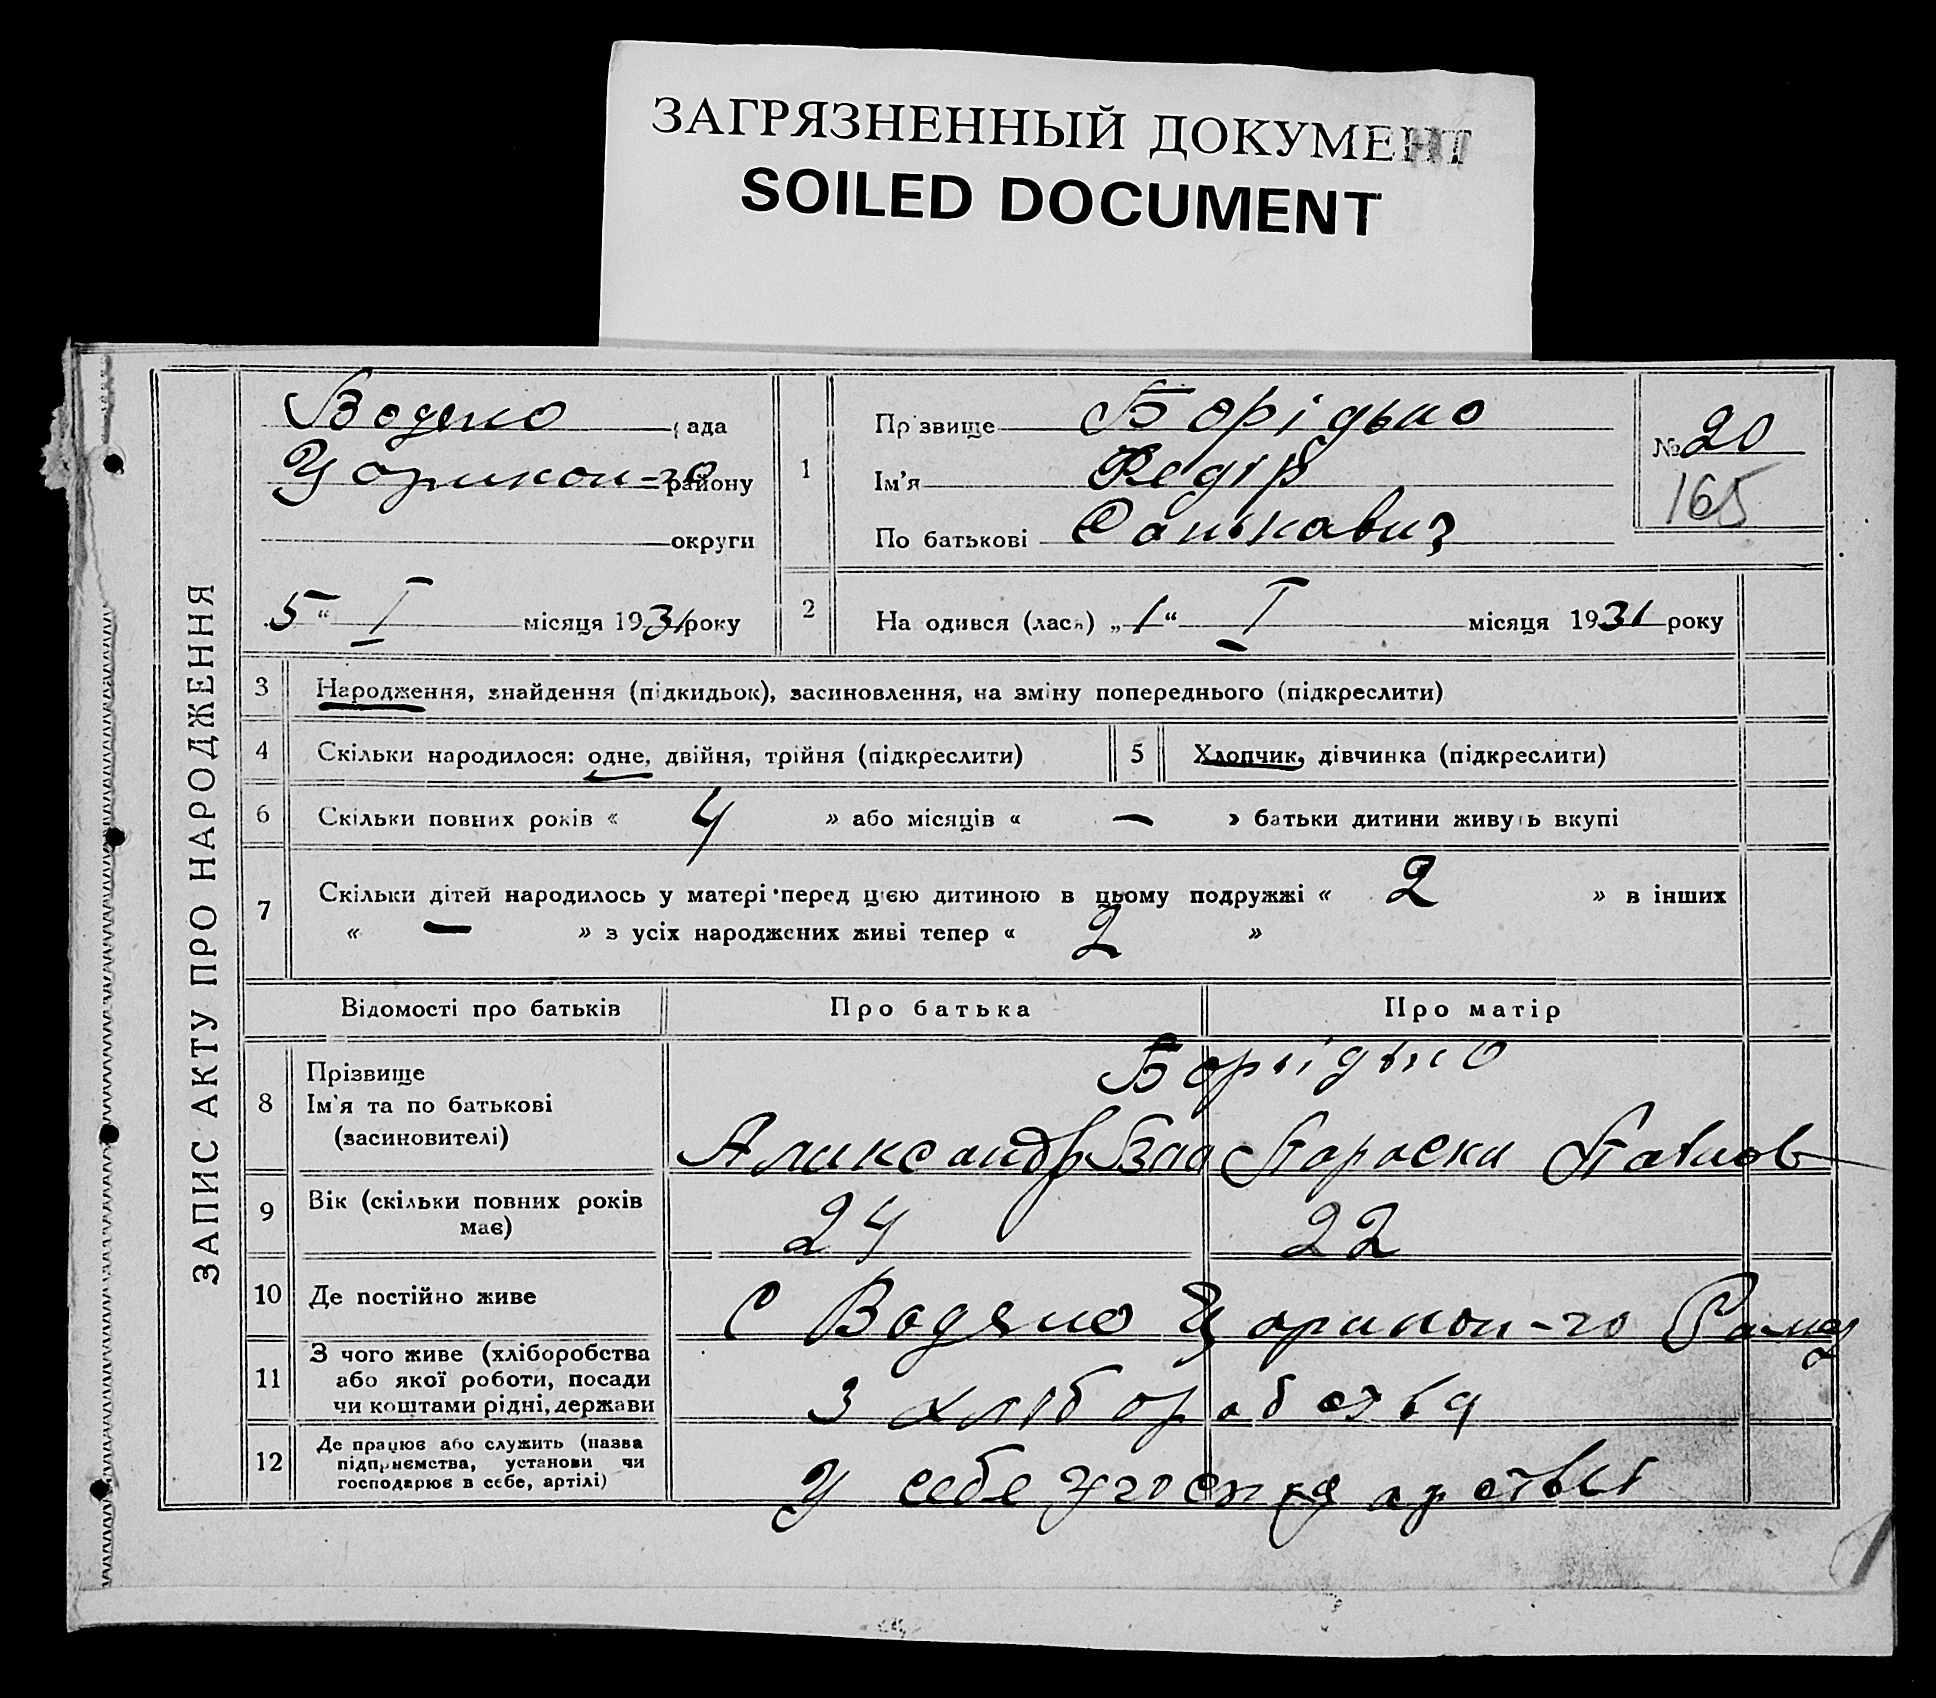 ЗАГРЯЗНЕННЫЙ ДОКУМЕНТ
SOILED DOCUMENT
ЗАПИС АКТУ ПРО НАРОДЖЕННЯ
Водяно рада
Царикон-го району
округи
5 “ I місяця 1931 року
1
Прізвище Борідько
Ім'я Федір
По батькові Санькавич
№ 20
165
2 Народився (лася) „1“ I місяця 1931 року
3 Народження, знайдення (підкидьок), засиновлення, на зміну попереднього (підкреслити)
4 Скільки народилося: одне, двійня, трійня (підкреслити) 5 Хлопчик, дівчинка (підкреслити)
6 Скільки повних років « 4 » або місяців « — » батьки дитини живуть вкупі
7 Скільки дітей народилось у матері перед цією дитиною в цьому подружжі « 2 » в інших
« — » з усіх народжених живі тепер « 2 »
Відомості про батьків Про батька Про матір
8 Прізвище Борідько
Ім'я та по батькові
(засиновителі) Александр Параски Павлов
9 Вік (скільки повних років
має) 24 22
10 Де постійно живе С Водяно Царикон-го
11 З чого живе (хліборобства
або якої роботи, посади
чи коштами рідні, держави З хліборобства
12 Де працює або служить (назва
підприємства, установи чи
господарює в себе, артілі) У себе у господарстві